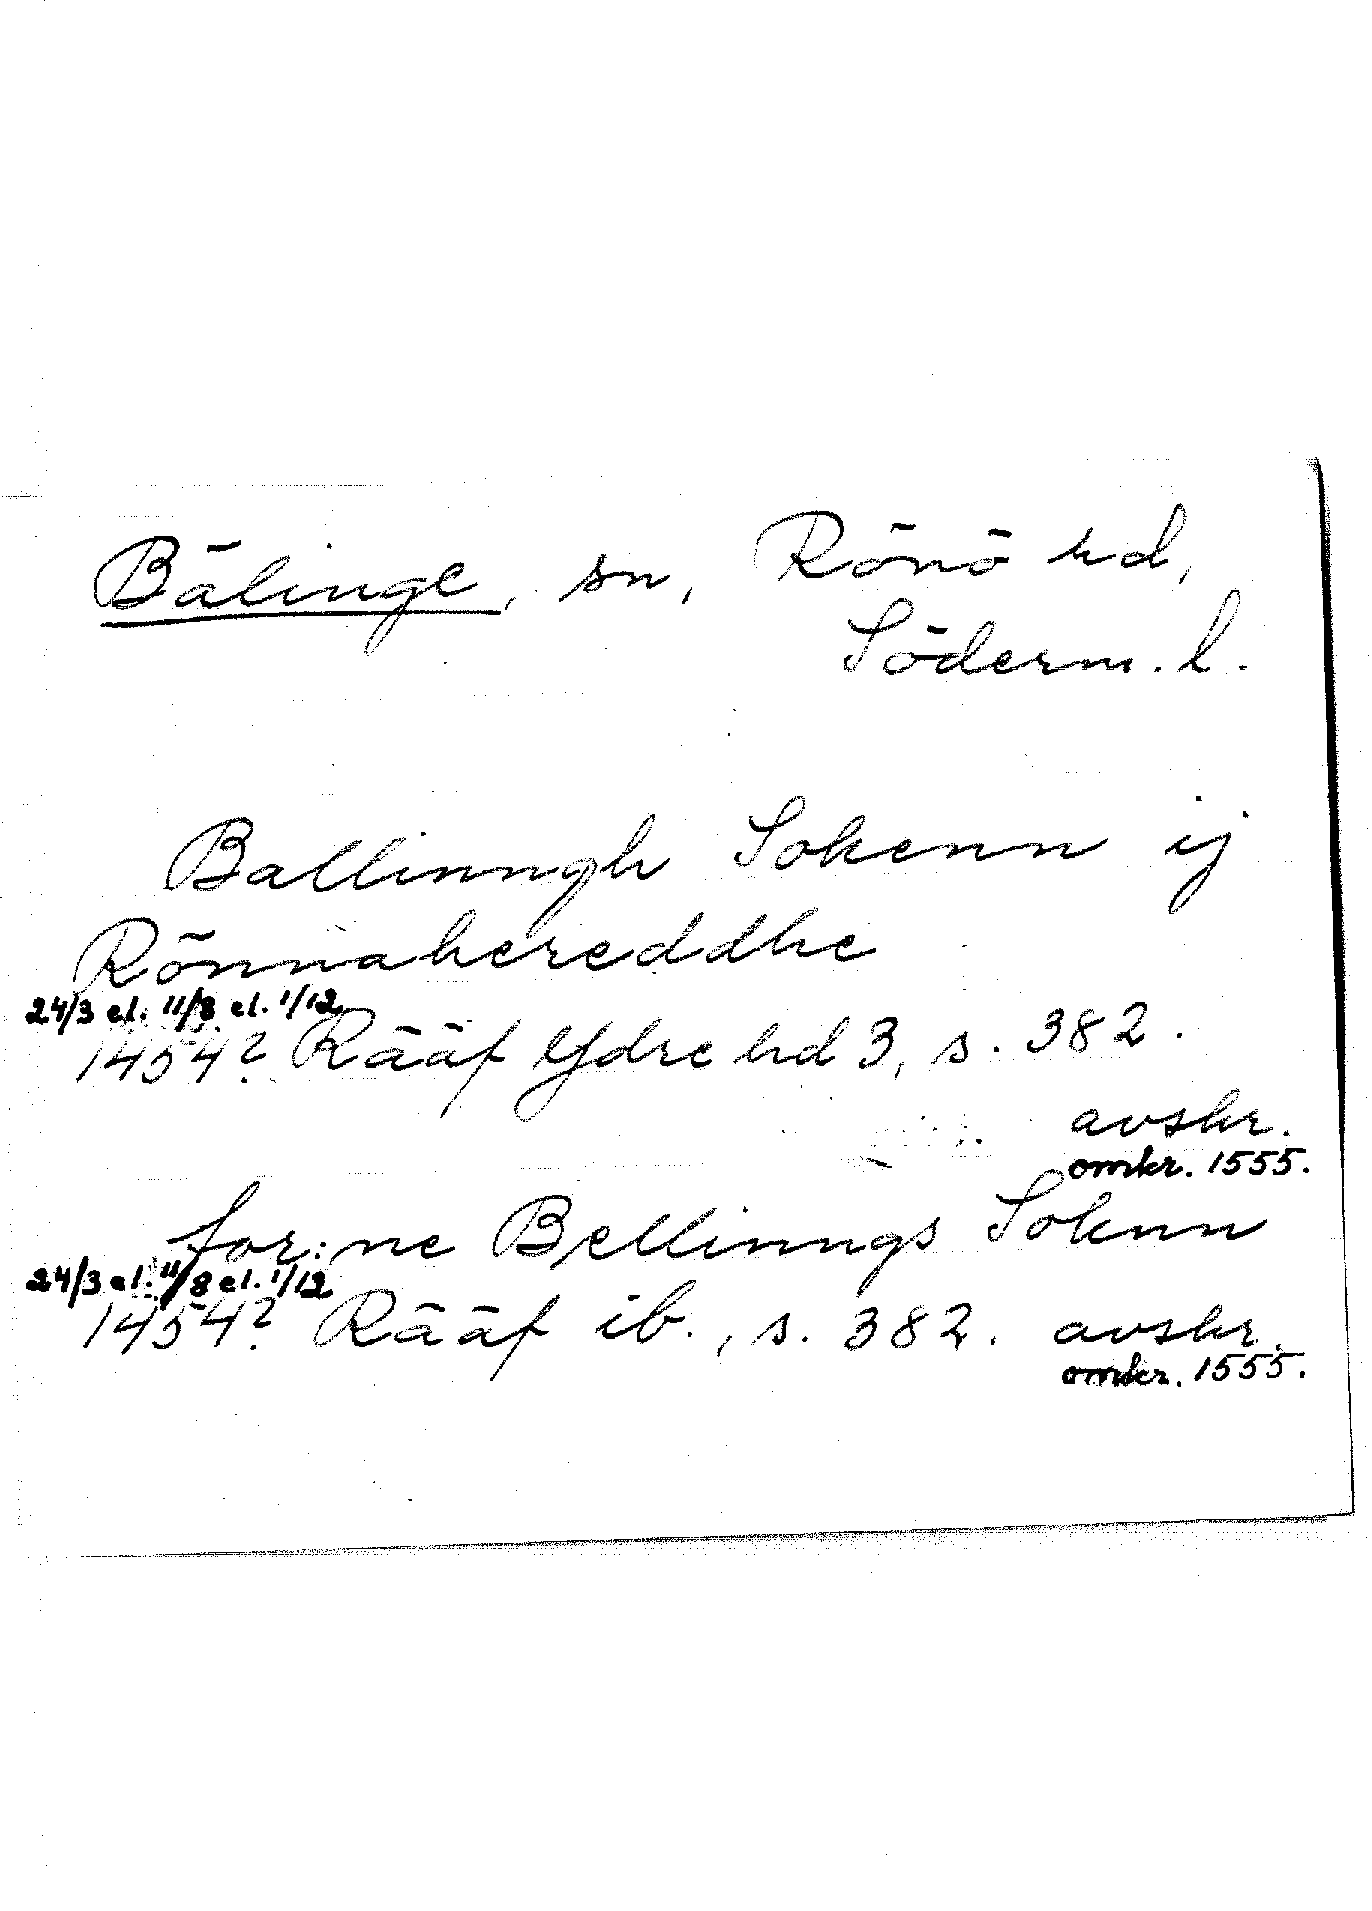 Bälinge, sn, Rönö hd,
Söderm. l.
Ballinngh Sokenn ij
Rönnahereddhe
24/3 el. 11/8 el. 1/12
1454? Rääf Ydre hd 3, s. 382.
avskr.
omkr. 1555.
for:ne Bellinngs Soknn
24/3 el. 11/8 el. 1/12
1454? Rääf ib., s. 382. avskr.
omkr. 1555.